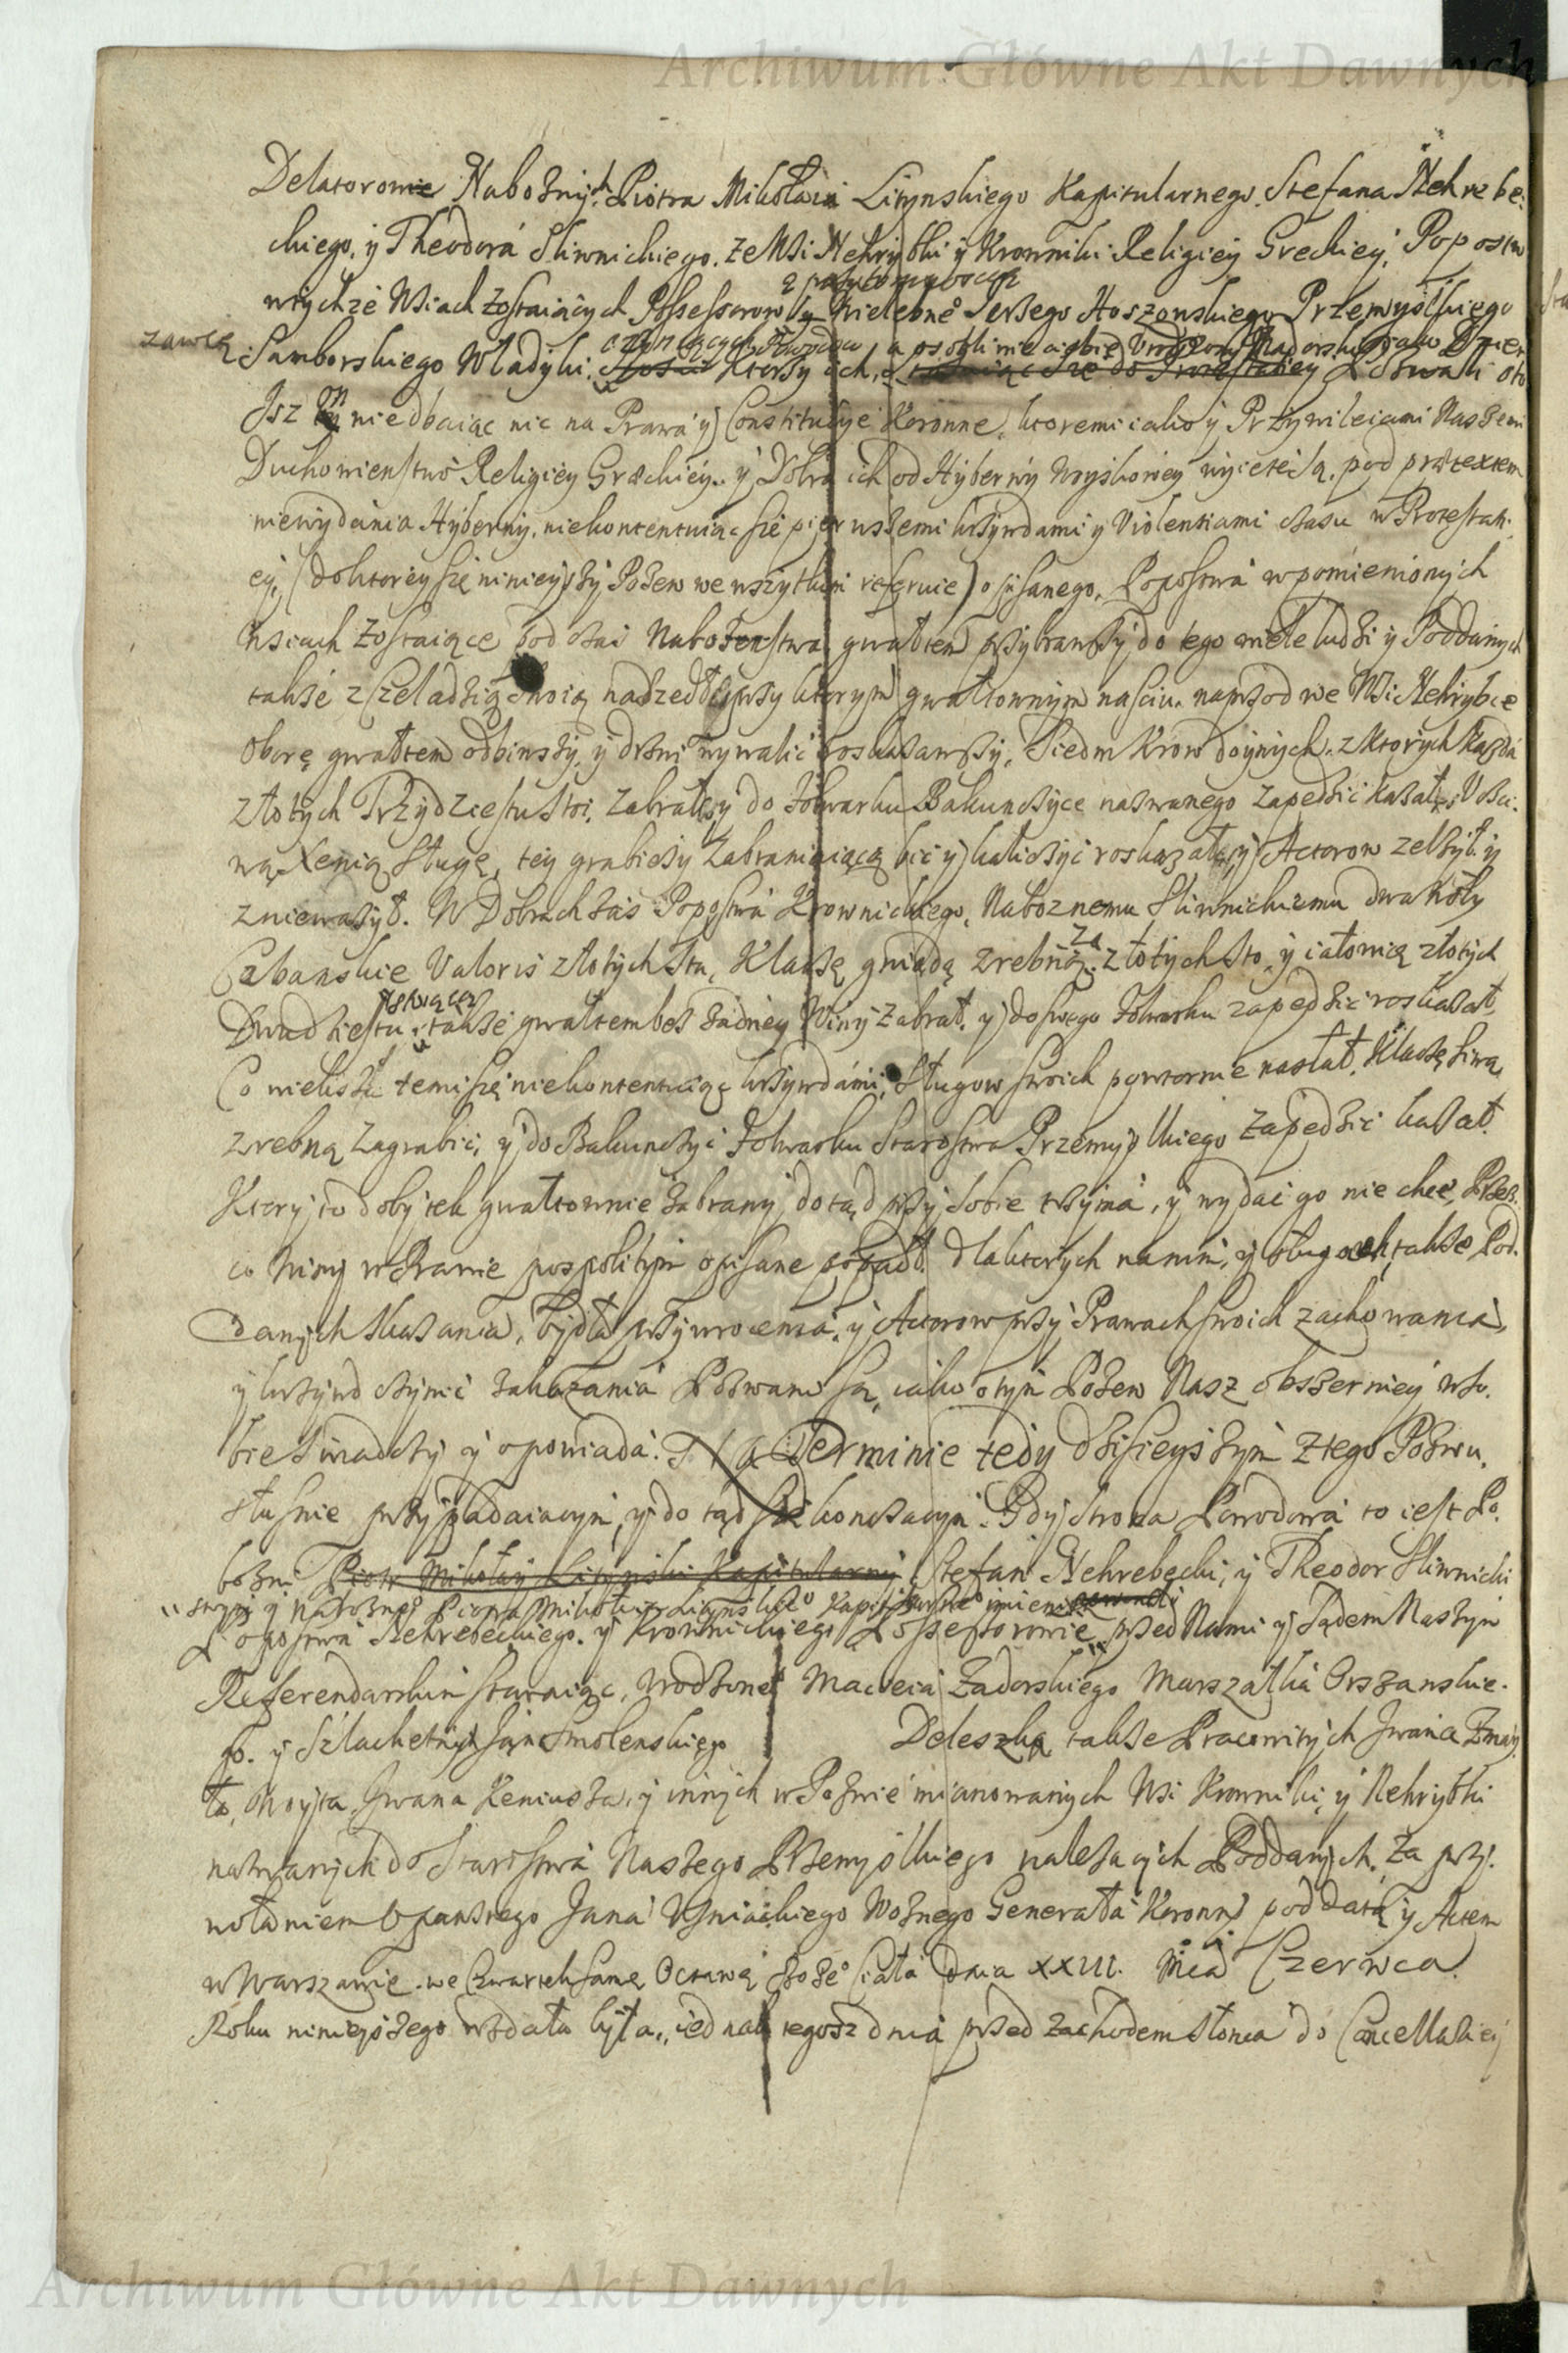 Archiwum Główne Akt Dawnych
Delatorowie Nabożnych Piotra Mikołaia Litynskiego Kapitularnego, Stefana Nehrebe-
ckiego, y Theodora Sliwnickiego. ze Wsi Nehrybki y Krowniki Religiey Greckiey, Popostw
wtychże Wsiach zostaiących Possessorow y Wielebne° Jerzego Hoszowskiego Przemyślskiego
zawcą
Samborskiego Władyki, ktorzy ich, Pozwali oto
Isz nie dbaiąc nic na Prawa y Constitucye Koronne, ktoremi iako y Przywileiami Naszemi
Duchowienstwo Religiey Græckiey, y Dobra ich od Hyberny Woyskowey wyięte są, pod prætextem
niewydania Hyberny, niekontentuiąc się pierwszemi krzywdami y Violentiami czasu w Protestati-
ey, (do ktorey się ninieyszy Pozew we wszytkim referuie) opisanego, Popostwa wpomienionych
wsiach zostaiące pod czas Nabożenstwa gwałtem przybrawszy do tego wiele ludzi y Poddanych
także z Czeladzią swoią naszedł, przy ktorym gwałtownym naściu, naprzod we Wsi Nehrybce
Oborę gwałtem odbiwszy, y drzwi wywalić roskazawszy, Siedm Krow doynych, z ktorych każda
złotych Trzydziestu stoi, zabrał, y do folwarku Bakunczyce nazwanego zapędzić kazał, Uczci-
wą Xenią sługę, tey grabieży zabraniaiącą bić y kaliczyć roskazał, y Actorow zelżył y
znieważył. W Dobrach zaś Popostwa Krownickiego, Nabożnemu Sliwnickiemu dwa Woły
Cabanskie Valoris złotych stu, Klaczę gniadą zrebną za złotych sto, y iałowią złotych
Dwudziestu, także gwałtem bez żadney Winy zabrał, y do swego folwarku zapędzić roskazał,
Co większa temi się niekontentuiąc krzywdami, sługow swoich powtornie nasłał, Klaczę siwą
zrebną zagrabić, y do Bakunczyc folwarku Starostwa Przemyslkiego zapędzić kazał.
Ktory to dobytek gwałtownie zabrany dotąd przy sobie trzyma, y wydać go nie chce, Przez
co Winy w Prawie pospolitym opisane popadł. Dla ktorych na nim, y sługach, także Pod-
danych skazania, bydła przywrocenia, y Actorow przy Prawach swoich zachowania,
y krzywd czynić zakazania Pozwani są, iako o tym Pozew Nasz obszerniey w so-
bie swiadczy y opowiada. Na Terminie tedy dzisieyszym z tego Pozwu,
słusnie przypadaiącym, y do tąd się konczącym. Gdy strona Powodowa to iest Po-
bożni Piotr Mikołay Litynski Kapitularny Stefan Nehrebecki, y Theodor Sliwnicki
swym y Nabożne° Piotra Mikołaia Litynskie° Kapitularne° imieniem
Popostwa Nehrebeckiego y Krownickiego Possessorowie przed Nami y Sądem Naszym
Referendarskim stawaiąc, Urodzone° Macieia Zadorskiego Marszałka Orszanskie-
go, y Szlachetnych Jana Smolenskiego Deleszka także Pracowitych Iwana Zmay-
ło, Woyta, Iwana Keniusza, y innych w Pozwie mianowanych Wsi Krowniki, y Nehrybki
nazwanych do Starostwa Naszego Przemyślkiego należących Poddanych, za przy-
wołaniem Opatrznego Jana Uzniackiego Woznego Generała Koronne° pod datą y Actem
w Warszawie we Czwartek samą Octawą Boże° Ciała Dnia XXIII. Mca Czerwca
Roku ninieyszego wzdała była, iednak tegosz dnia przed zachodem słonca do Cancellariey
Archiwum Główne Akt Dawnych